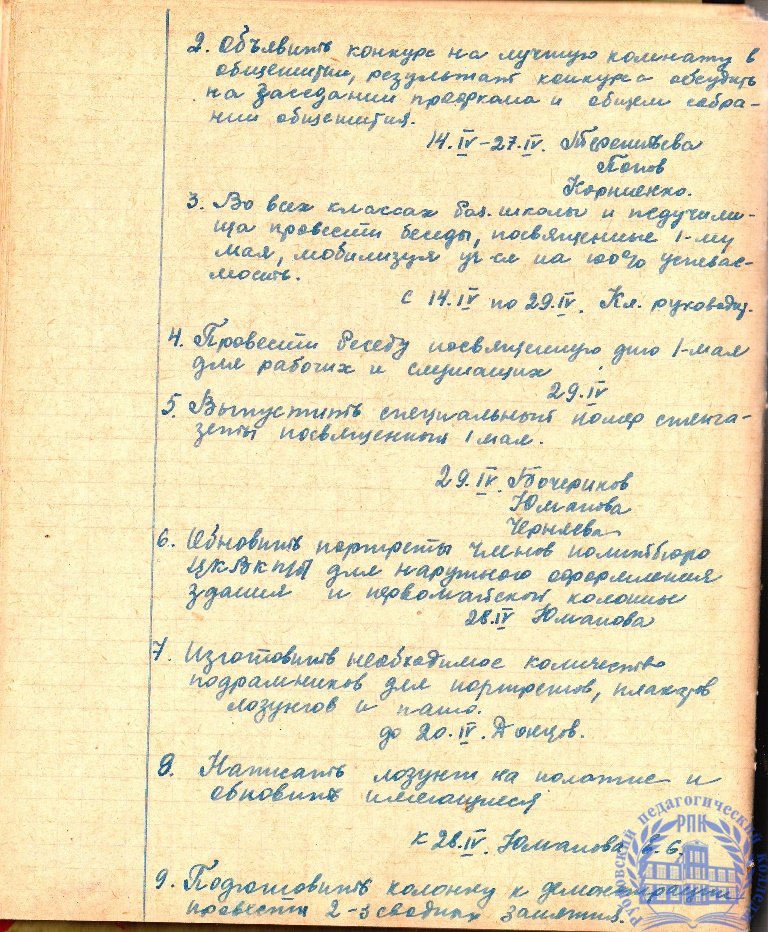 2. Объявить конкурс на лучшую комнату в
общежитии, результат конкурса обсудить
на заседании профкома и общем собра-
нии общежития.
14.IV–27.IV. Терентьева
Попов
Корниенко.
3. Во всех классах баз. школы и педучили-
ща провести беседы, посвященные 1-му
мая, мобилизуя уч-ся на 100% успевае-
мость.
с 14.IV по 29.IV. Кл. руководит.
4. Провести беседу посвященную дню 1-мая
для рабочих и служащих
29.IV
5. Выпустить специальный номер стенга-
зеты посвященный 1 мая.
29.IV. Бочериков
Юманова
Черняева
6. Обновить портреты членов политбюро
ЦКВКП(б) для наружного оформления
здания и первомайской колонны
28.IV Юманова
7. Изготовить необходимое количество
подрамников для портретов, плакатов
лозунгов и пано.
до 20.IV. Донцов.
8. Написать лозунги на полотне и
обновить имеющиеся
к 28.IV. Юманова
9. Подготовить колонну к демонстрации
провести 2-3 сводных занятия.
РПК
Рубцовский педагогический колледж